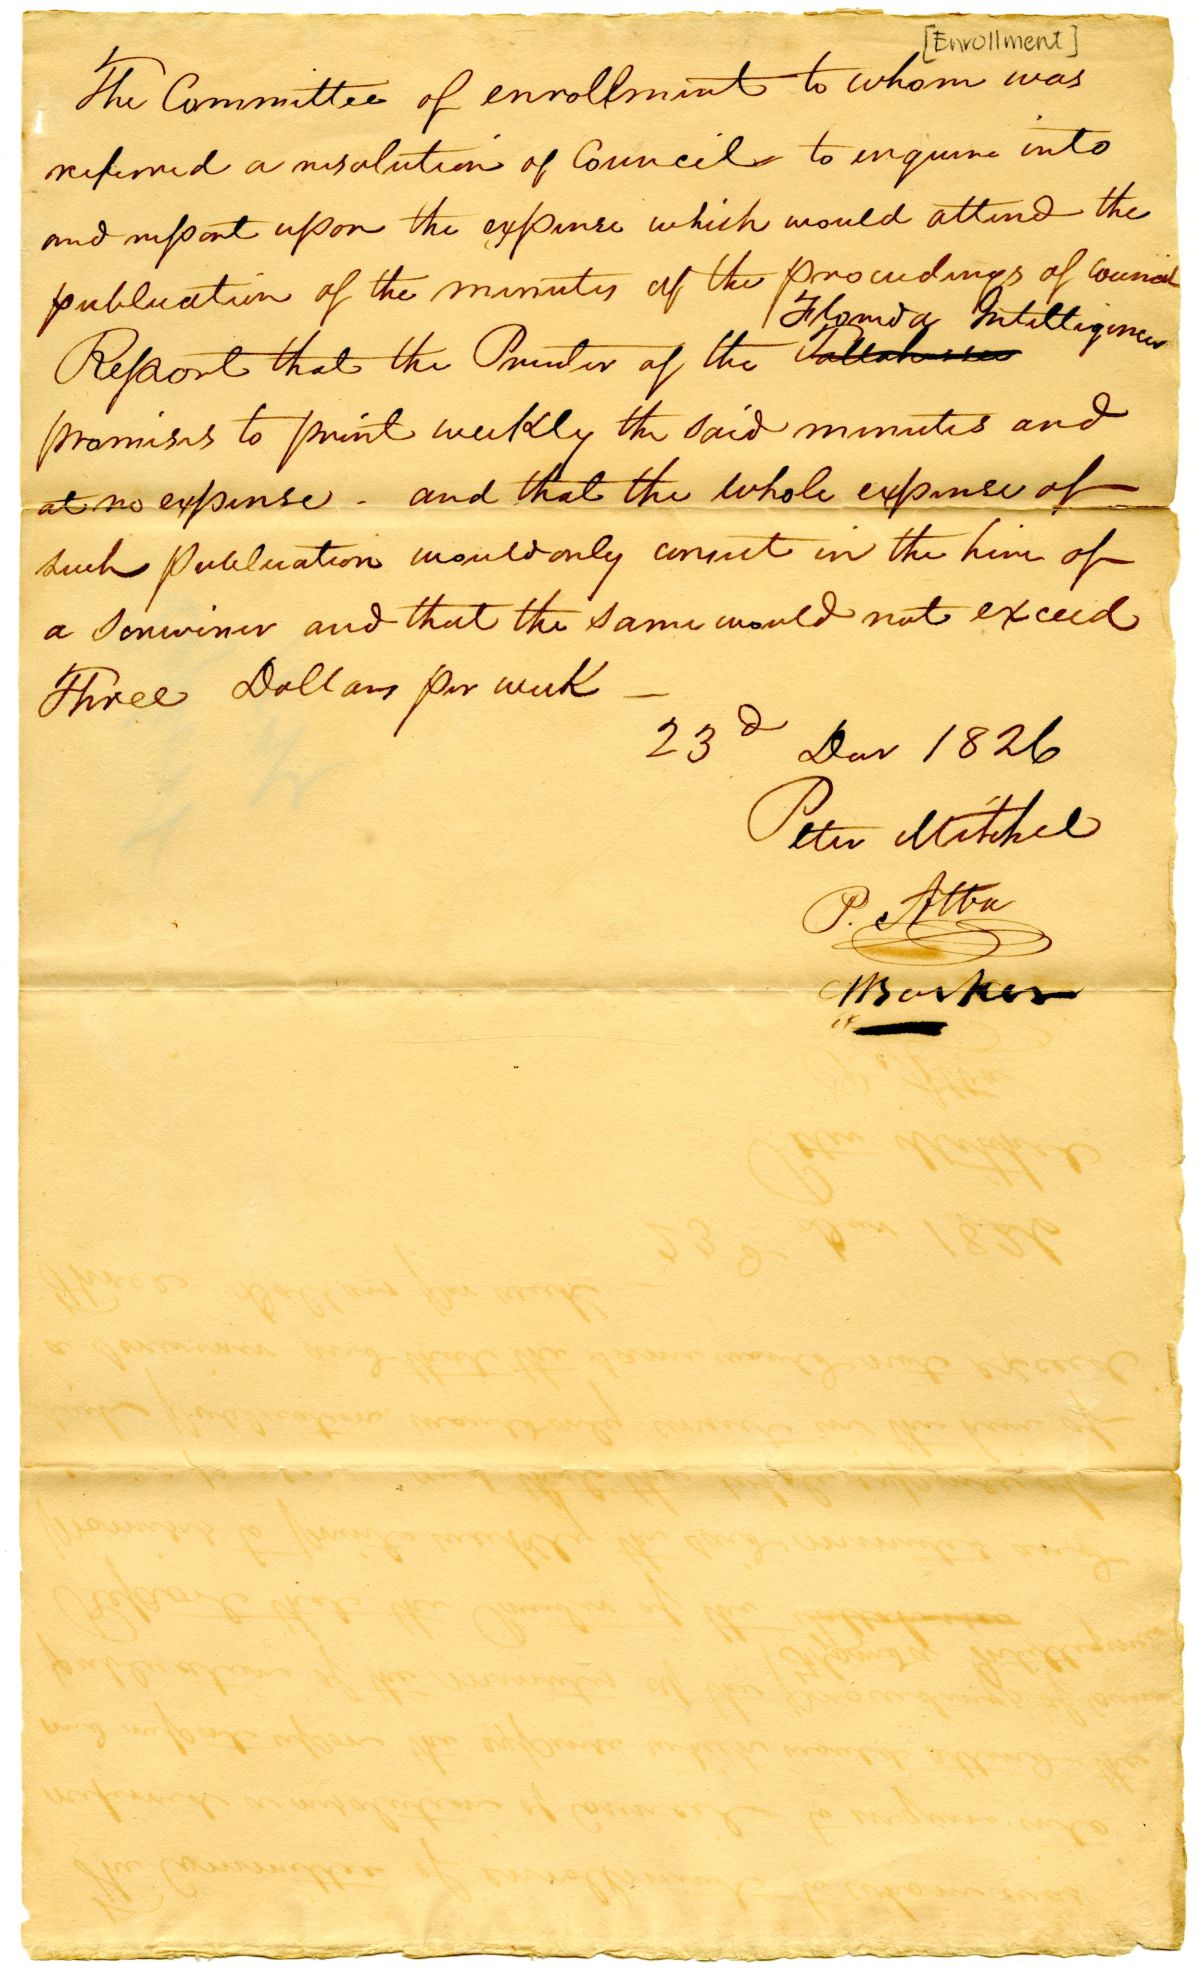 [Enrollment]
The Committee of enrollment to whom was
referred a resolution of Council to inquire into
and report upon the expense which would attend the
publication of the minutes of the proceedings of Council
Florida Intelligencer
Report that the Printer of the Tallahassee
promises to print weekly the said minutes and
at no expense - and that the whole expense of
such publication would only consist in the hire of
a scriviner and that the same would not exceed
Three Dollars per week —
23d Decr 1826
Peter Mitchel
P. Alba
Barker